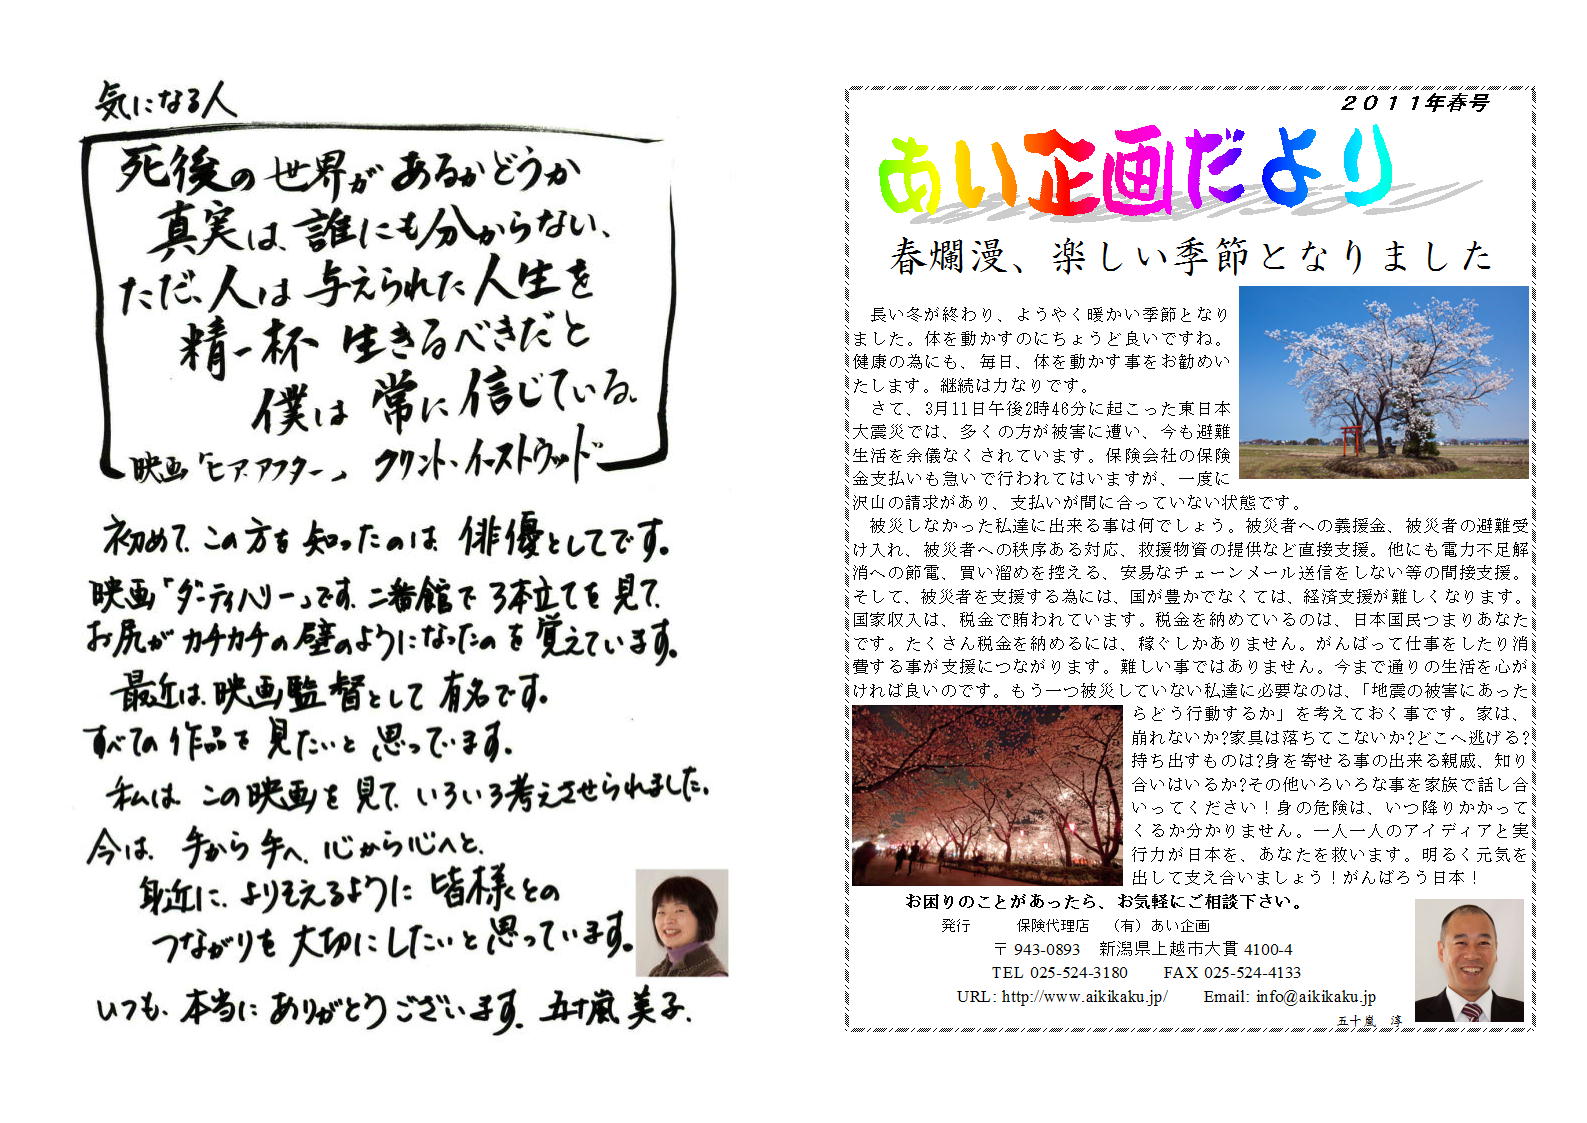 気になる人
死後の世界があるかどうか
真実は、誰にも分からない、
ただ、人は与えられた人生を
精一杯 生きるべきだと
僕は 常に信じている。
映画「ヒア アフター」 クリント・イーストウッド
初めて、この方を知ったのは、俳優としてです。
映画「ダーティハリー」です、二番館で3本立てを見て、
お尻がカチカチの壁のようになったのを覚えています。
最近は、映画監督として有名です。
すべての作品を見たいと思っています。
私は、この映画を見て、いろいろ考えさせられました。
今は、手から手へ、心から心へと、
身近に、よりそえるように皆様との
つながりを大切にしたいと思っています。
いつも、本当にありがとうございます。五十嵐美子.
2011年春号
あい企画だより
春爛漫、楽しい季節となりました
長い冬が終わり、ようやく暖かい季節となり
ました。体を動かすのにちょうど良いですね。
健康の為にも、毎日、体を動かす事をお勧めい
たします。継続は力なりです。
さて、3月11日午後2時46分に起こった東日本
大震災では、多くの方が被害に遭い、今も避難
生活を余儀なくされています。保険会社の保険
金支払いも急いで行われてはいますが、一度に
沢山の請求があり、支払いが間に合っていない状態です。
被災しなかった私達に出来る事は何でしょう。被災者への義援金、被災者の避難受
け入れ、被災者への秩序ある対応、救援物資の提供など直接支援。他にも電力不足解
消への節電、買い溜めを控える、安易なチェーンメール送信をしない等の間接支援。
そして、被災者を支援する為には、国が豊かでなくては、経済支援が難しくなります。
国家収入は、税金で賄われています。税金を納めているのは、日本国民つまりあなた
です。たくさん税金を納めるには、稼ぐしかありません。がんばって仕事をしたり消
費する事が支援につながります。難しい事ではありません。今まで通りの生活を心が
ければ良いのです。もう一つ被災していない私達に必要なのは、「地震の被害にあった
らどう行動するか」を考えておく事です。家は、
崩れないか?家具は落ちてこないか?どこへ逃げる?
持ち出すものは?身を寄せる事の出来る親戚、知り
合いはいるか?その他いろいろな事を家族で話し合
いってください！身の危険は、いつ降りかかって
くるか分かりません。一人一人のアイディアと実
行力が日本を、あなたを救います。明るく元気を
出して支え合いましょう！がんばろう日本！
お困りのことがあったら、お気軽にご相談下さい。
発行 保険代理店 （有）あい企画
〒943-0893 新潟県上越市大貫 4100-4
TEL 025-524-3180 FAX 025-524-4133
URL: http://www.aikikaku.jp/ Email: info@aikikaku.jp
五十嵐 淳